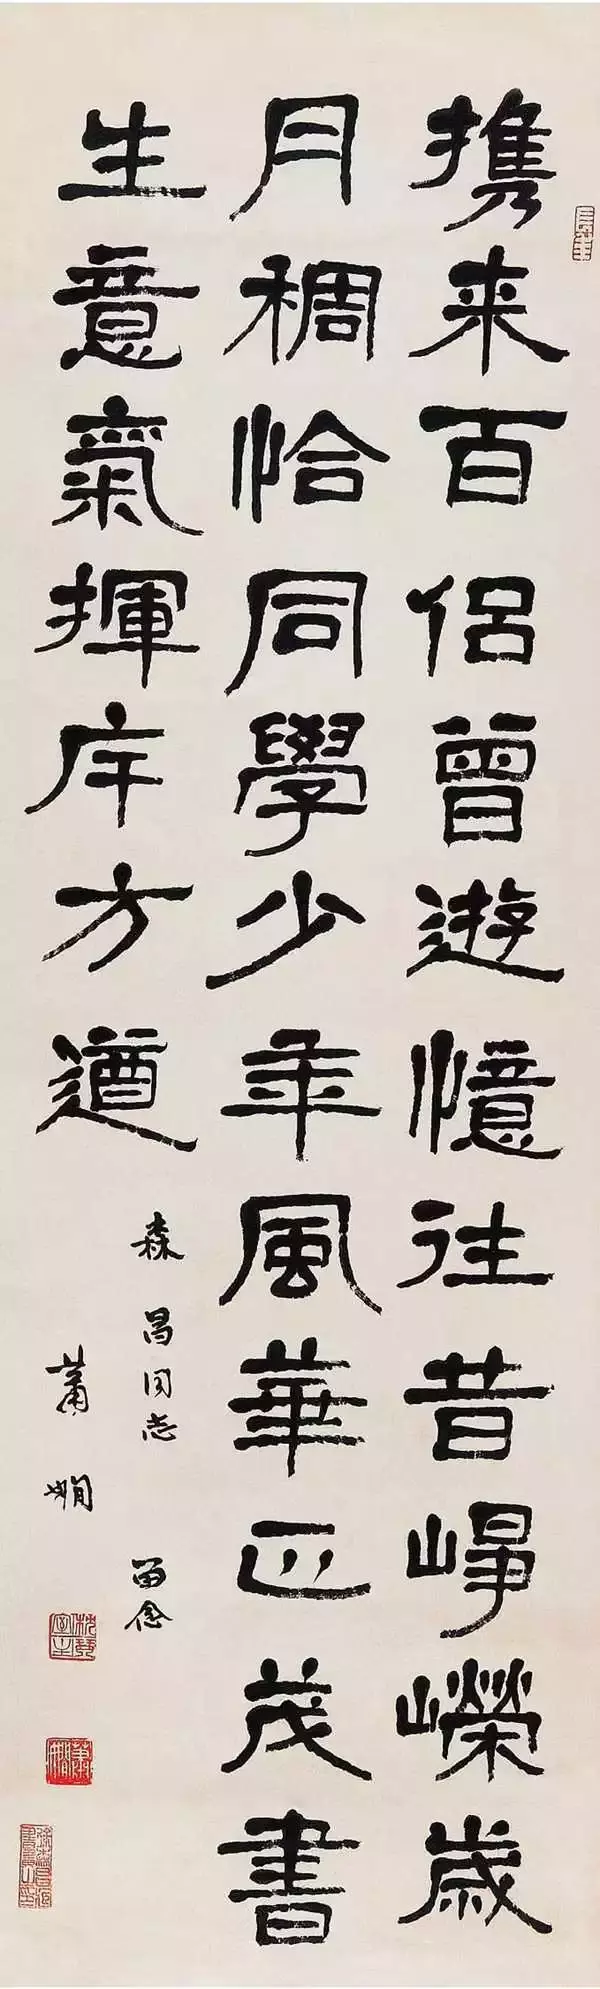 携来百侣曾遊憶往昔崢嶸歲
月稠恰同學少年風華正茂書
生意氣揮斥方遒
森昌同志 留念
蕭嫻
枕琴室主
蕭嫻